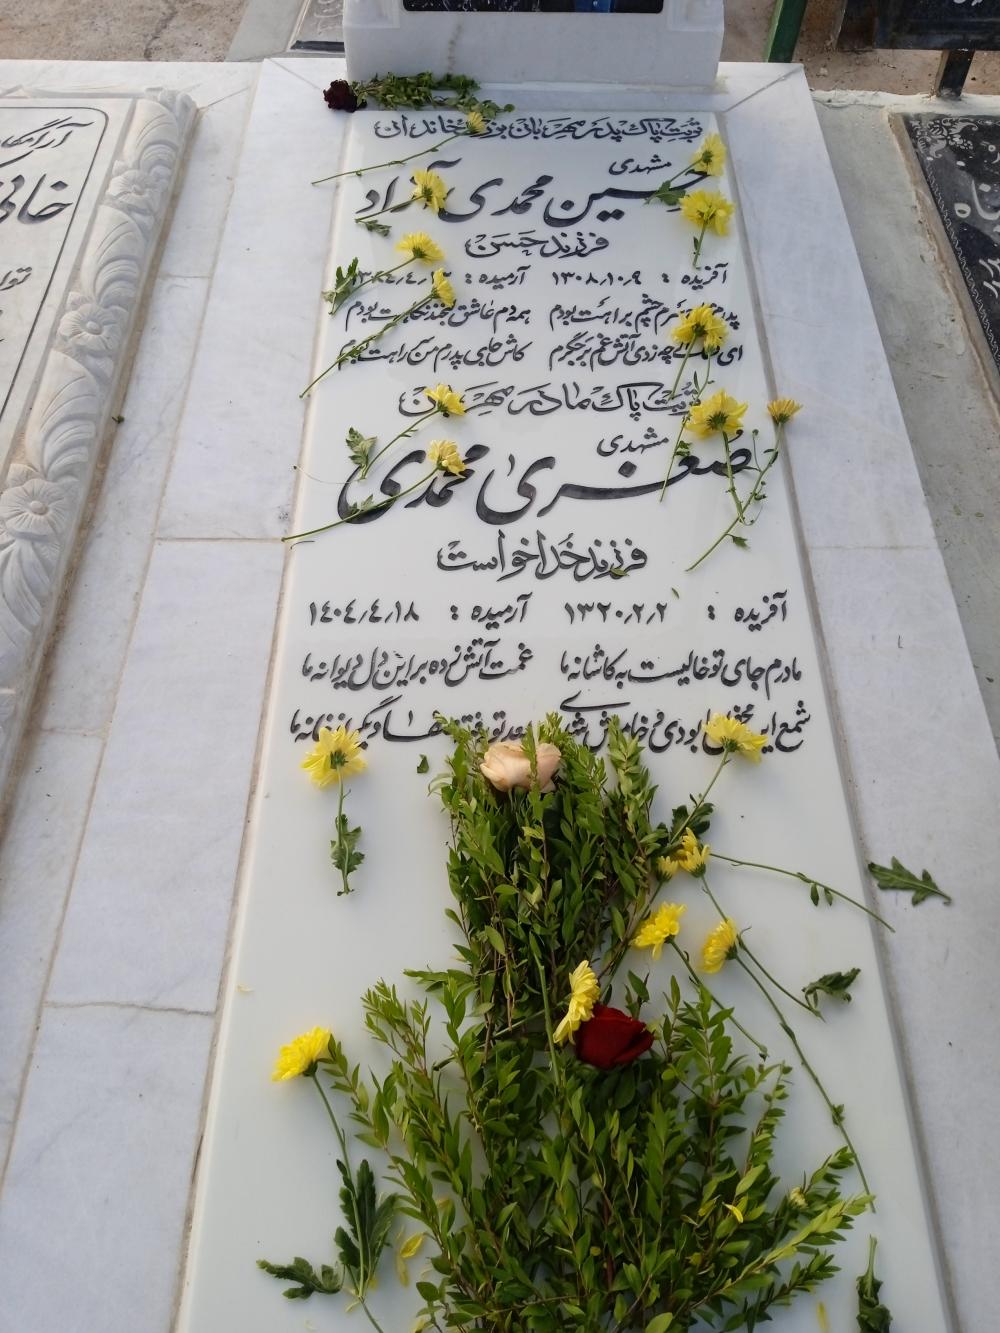 تربت پاک پدر مهربان بزرگ خاندان
مشهدی
حسین محمدی آزاد
فرزند حسن
آفریده : ۱۳۰۸،۱۰،۹ آرمیده :
چشم براهت بودم همه دم عاشق لبخند نگاهت بودم
ای چه زدی آتش غم بر جگرم کاش جای پدرم من سر راهت بودم
تربت پاک مادر مهربان
مشهدی
صغری محمدی
فرزند خداخواست
آفریده : ۱۳۲۰،۲،۲ آرمیده : ۱۴۰۴،۴،۱۸
مادرم جای تو خالیست به کاشانه ما غمت آتش زده بر این دل دیوانه ما
شمع این محفل ما بودی و خاموش شدی بعد تو
آرامگاه